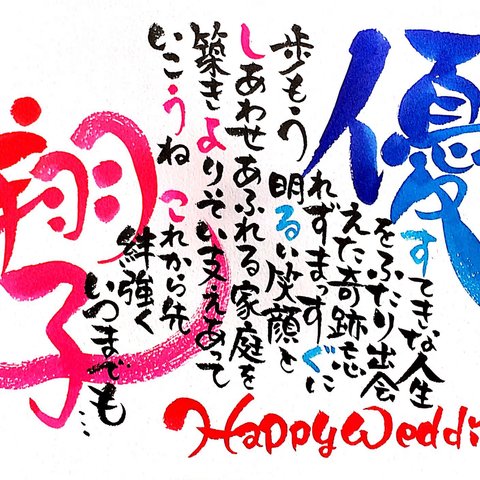 優
すてきな人生
をふたり出会
えた奇跡忘
れずまっすぐに
歩もう 明るい笑顔と
しあわせあふれる家庭を
築きよりそい支えあって
いこうね これから先
絆強く
いつまでも…
翔子
Happy Weddi